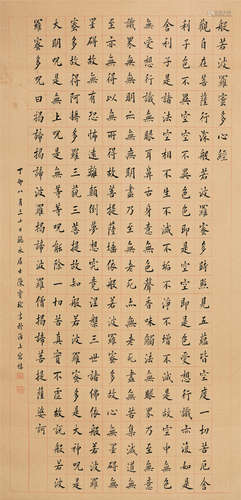 般若波羅蜜多心經
觀自在菩薩行深般若波羅蜜多時照見五蘊皆空度一切苦厄舍
利子色不異空空不異色色即是空空即是色受想行識亦復如是
舍利子是諸法空相不生不滅不垢不淨不增不減是故空中無色
無受想行識無眼耳鼻舌身意無色聲香味觸法無眼界乃至無意
識界無無明亦無無明盡乃至無老死亦無老死盡無苦集滅道無智
亦無得以無所得故菩提薩埵依般若波羅蜜多故心無罣礙無
罣礙故無有恐怖遠離顛倒夢想究竟涅槃三世諸佛依般若波羅
蜜多故得阿耨多羅三藐三菩提故知般若波羅蜜多是大神咒是
大明咒是無上咒是無等等咒能除一切苦真實不虛故說般若波
羅蜜多咒即說咒曰揭諦揭諦波羅揭諦波羅僧揭諦菩提薩婆訶
丁卯八月三十日居士陳書於海上寓樓